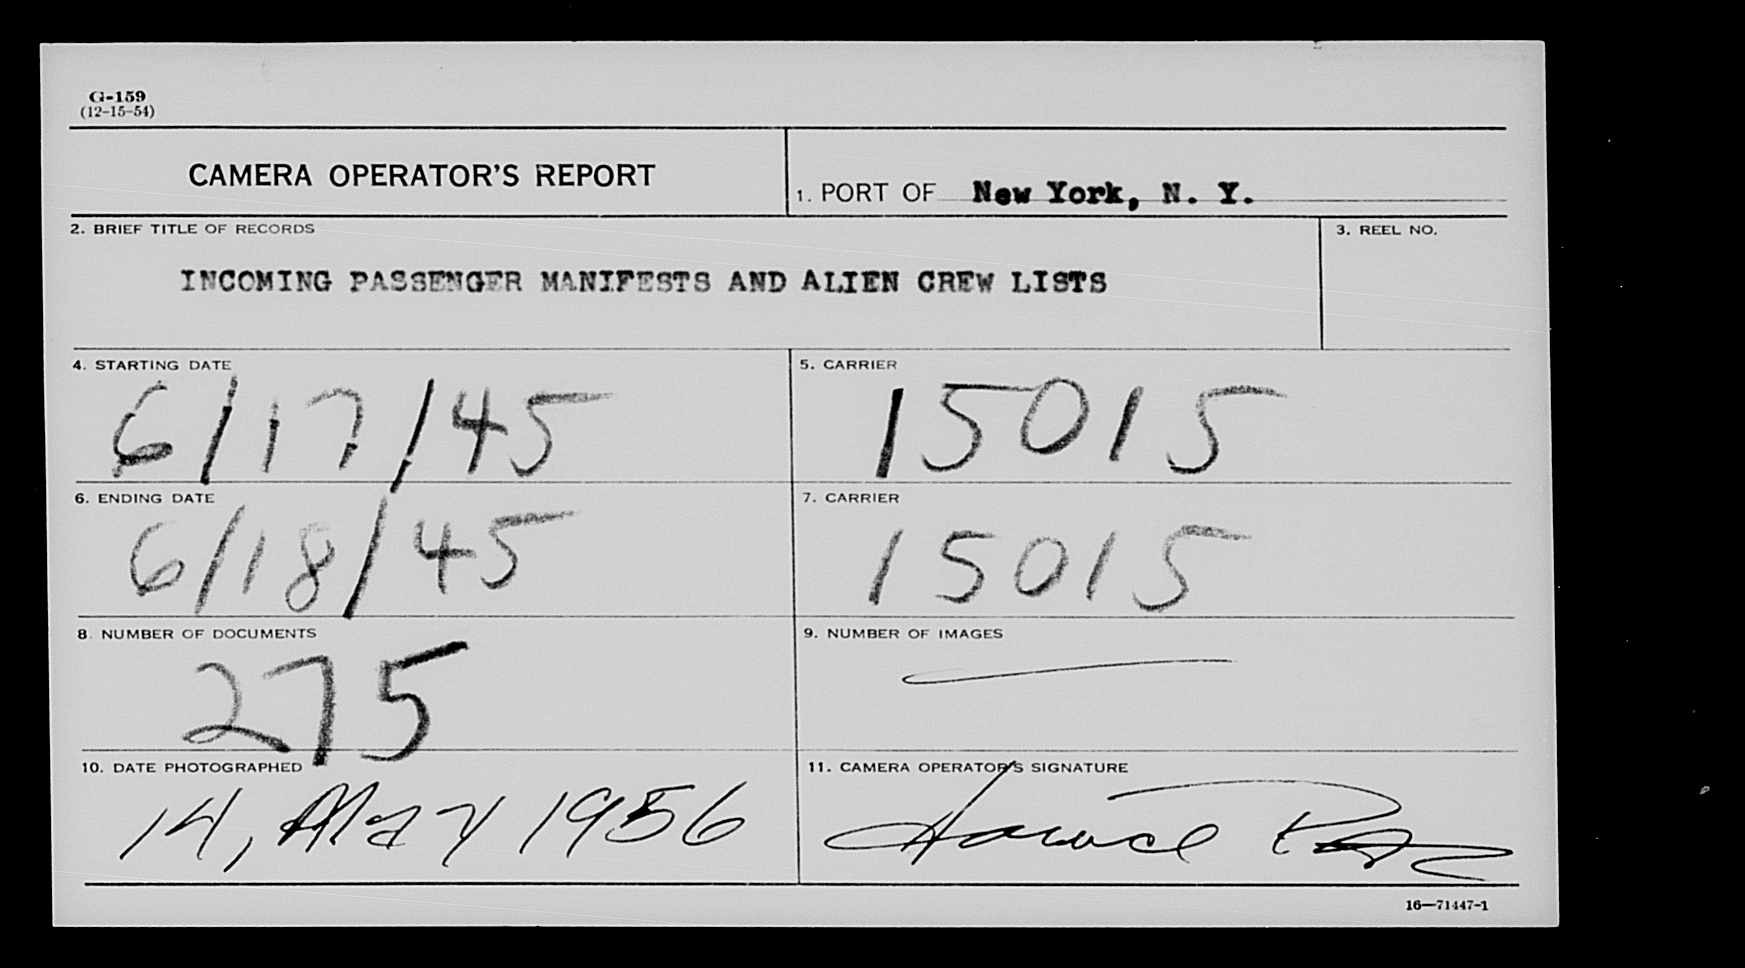 G-159
(12-15-54)
CAMERA OPERATOR'S REPORT
1. PORT OF New York, N. Y.
2. BRIEF TITLE OF RECORDS
3. REEL NO.
INCOMING PASSENGER MANIFESTS AND ALIEN CREW LISTS
4. STARTING DATE
5. CARRIER
6/17/45
15015
6. ENDING DATE
7. CARRIER
6/18/45
15015
8. NUMBER OF DOCUMENTS
9. NUMBER OF IMAGES
275
10. DATE PHOTOGRAPHED
11. CAMERA OPERATOR'S SIGNATURE
14, May 1956
Horace
16—71447-1